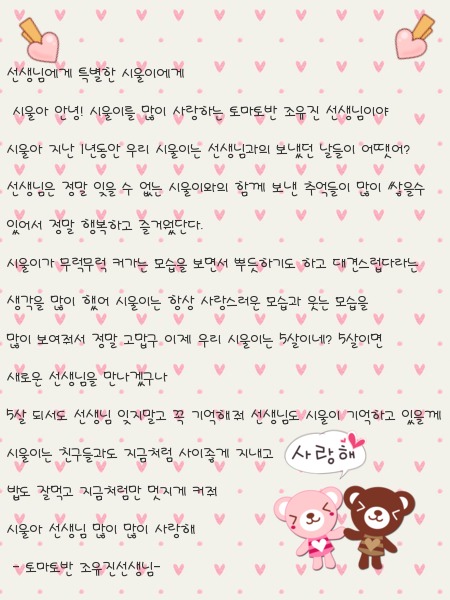 선생님에게 특별한 시율이에게
시율아 안녕! 시율이를 많이 사랑하는 토마토반 조유진 선생님이야
시율아 지난 1년동안 우리 시율이는 선생님과의 보냈던 날들이 어땠어?
선생님은 정말 잊을 수 없는 시율이와의 함께 보낸 추억들이 많이 쌓을수
있어서 정말 행복하고 즐거웠단다.
시율이가 무럭무럭 커가는 모습을 보면서 뿌듯하기도 하고 대견스럽다라는
생각을 많이 했어 시율이는 항상 사랑스러운 모습과 웃는 모습을
많이 보여줘서 정말 고맙구 이제 우리 시율이는 5살이네? 5살이면
새로운 선생님을 만나겠구나
5살 되서도 선생님 잊지말고 꼭 기억해줘 선생님도 시율이 기억하고 있을께
시율이는 친구들과도 지금처럼 사이좋게 지내고
사랑해
밥도 잘먹고 지금처럼만 멋지게 커줘
시율아 선생님 많이 많이 사랑해
- 토마토반 조유진선생님-